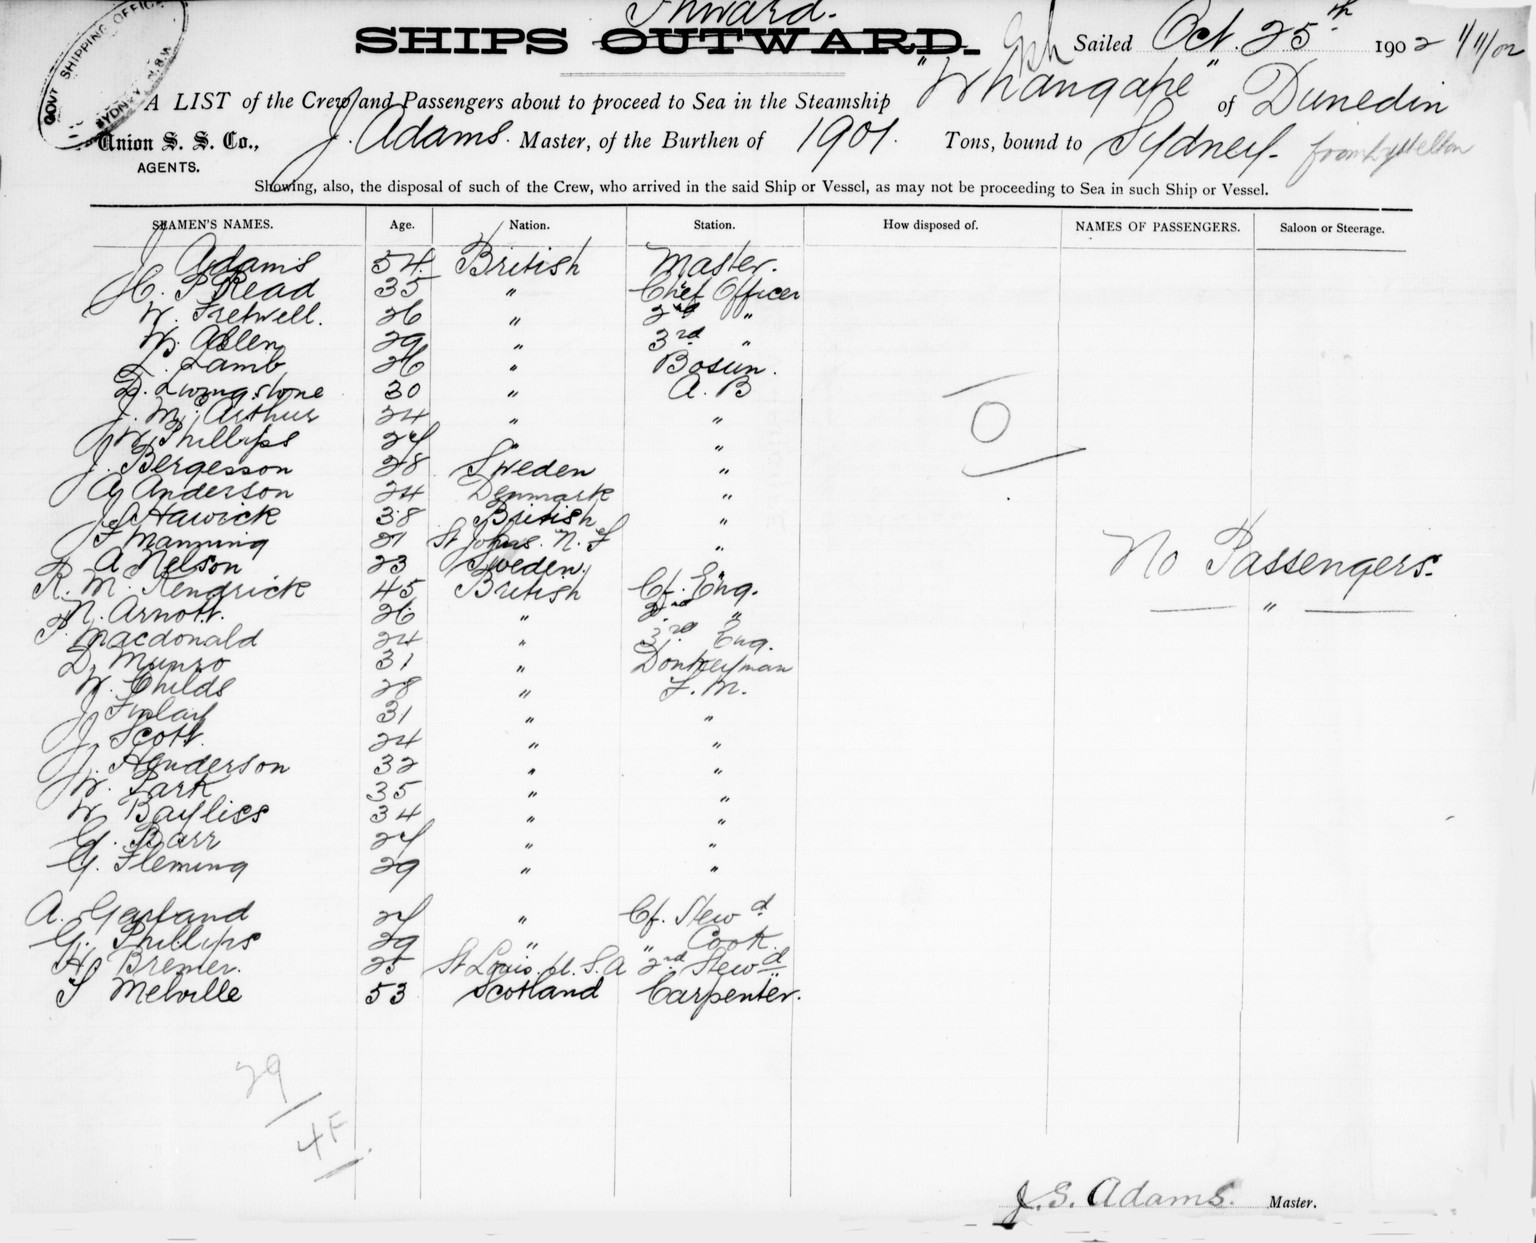 Inward.
SHIPS OUTWARD.
Sailed Oct. 25th 1902 1/11/02
GOVT SHIPPING OFFICE
SYDNEY N.S.W
A LIST of the Crew and Passengers about to proceed to Sea in the Steamship "Whangape" of Dunedin
Union S. S. Co., J. Adams. Master, of the Burthen of 1901. Tons, bound to Sydney. from Lyttelton
AGENTS.
Showing, also, the disposal of such of the Crew, who arrived in the said Ship or Vessel, as may not be proceeding to Sea in such Ship or Vessel.
SEAMEN'S NAMES. Age. Nation. Station. How disposed of. NAMES OF PASSENGERS. Saloon or Steerage.
J Adams 54 British Master.
H. P Read 35 " Chief Officer
W. Fretwell. 26 " 2nd "
W. Allen 29 " 3rd "
L. Lamb 26 " Bosun.
D. Livingstone 30 " A. B
J. Mc Arthur 24 " "
J W Phillips 27 " "
J. Bergesson 28 Sweden "
A Anderson 24 Denmark "
J S Hawick 38 British "
F Manning 21 St Johns. N. F "
A Nelson 23 Sweden "
R. Mc Kendrick 45 British Cf. Eng.
N. Arnott. 26 " 2nd "
P. Macdonald 24 " 3rd Eng.
D. Munro 31 " Donkeyman
W. Childs 28 " F. M.
J Finlay 31 " "
J Scott. 24 " "
J. Henderson 32 " "
W. Park 35 " "
W Bayliss 34 " "
G. Barr 27 " "
G. Fleming 29 " "
A. Garland 27 " Cf. Stewd
G. Phillips 29 " " Cook.
H Bremer. 25 St Louis. U. S. A 2nd Stewd
S Melville 53 Scotland Carpenter.
No Passengers.
"
29
4F
J. S. Adams. Master.